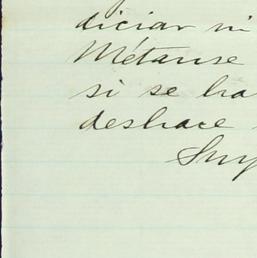 diciar ni
Métanse
si se ha
deshace
Suy